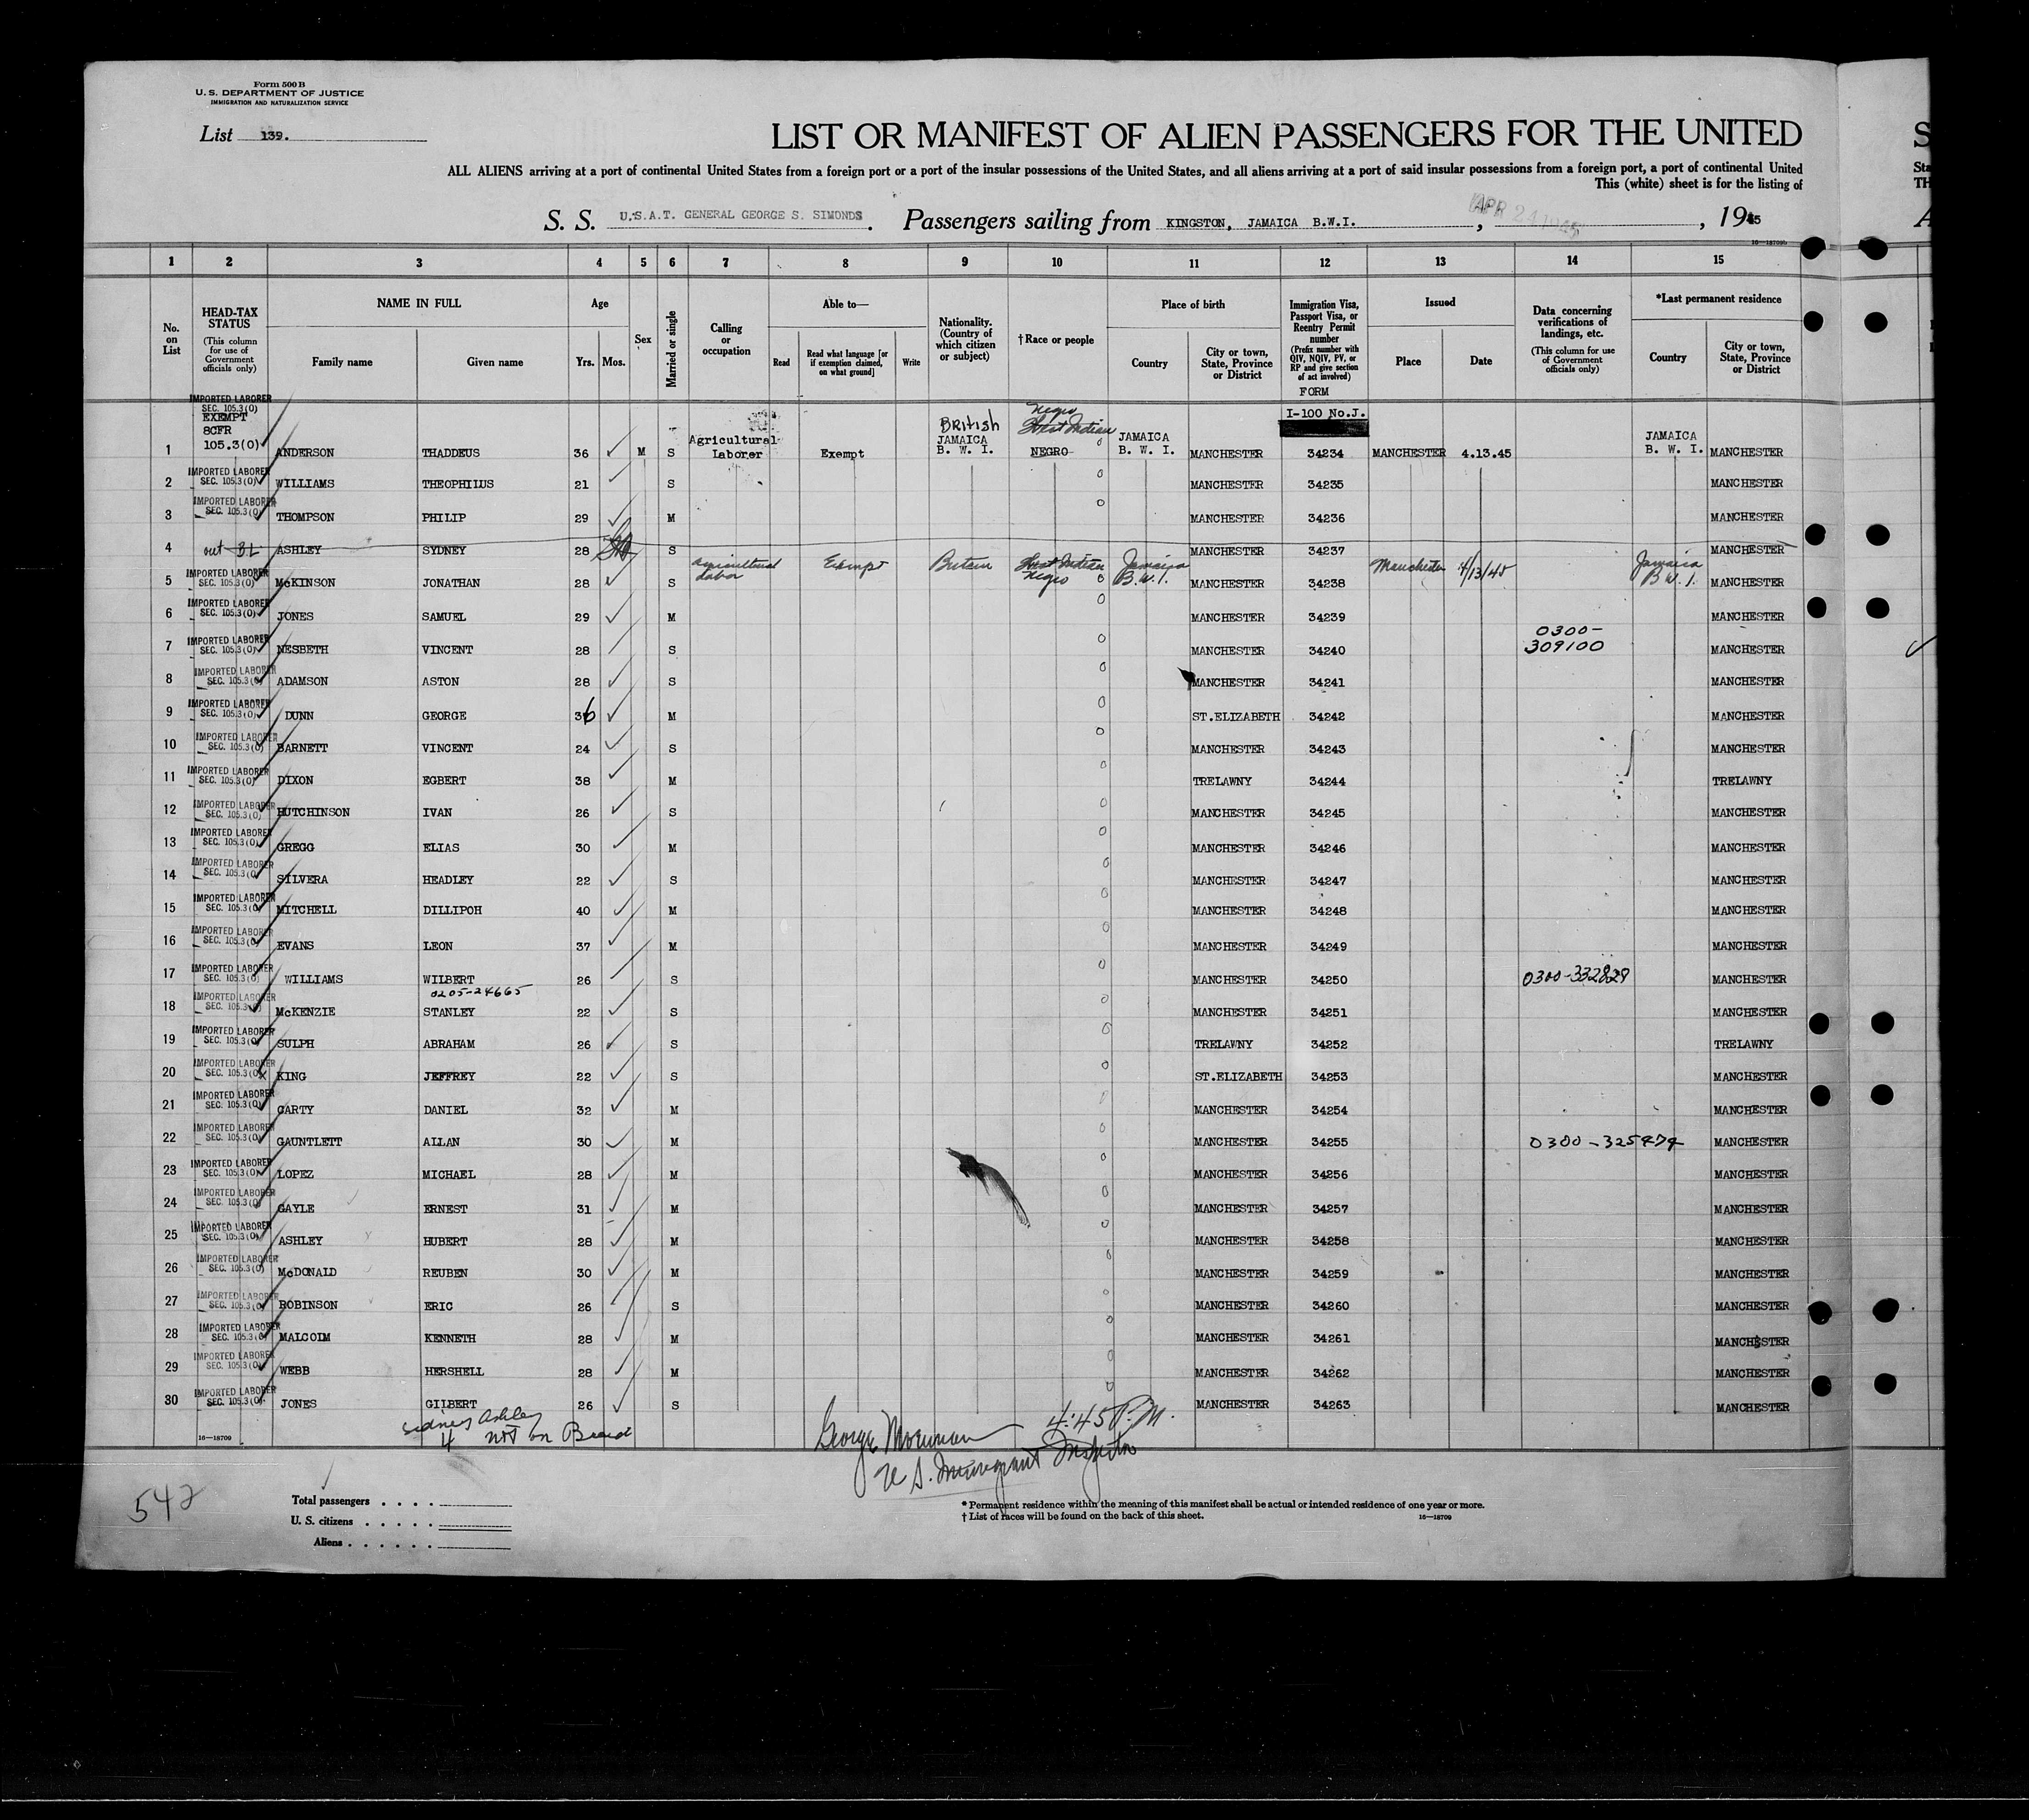 Form 500 B
U. S. DEPARTMENT OF JUSTICE
IMMIGRATION AND NATURALIZATION SERVICE
List 139.
LIST OR MANIFEST OF ALIEN PASSENGERS FOR THE UNITED
ALL ALIENS arriving at a port of continental United States from a foreign port or a port of the insular possessions of the United States, and all aliens arriving at a port of said insular possessions from a foreign port, a port of continental United
This (white) sheet is for the listing of
S. S. U.S.A.T. GENERAL GEORGE S. SIMONDS. Passengers sailing from KINGSTON, JAMAICA B.W.I., APR 24 1945, 1945
16—18709b
1 2 3 4 5 6 7 8 9 10 11 12 13 14 15
No. on List
HEAD-TAX STATUS
(This column for use of Government officials only)
NAME IN FULL
Family name Given name
Age
Yrs. Mos.
Sex
Married or single
Calling or occupation
Able to—
Read
Read what language [or if exemption claimed, on what ground]
Write
Nationality. (Country of which citizen or subject)
†Race or people
Place of birth
Country
City or town, State, Province or District
Immigration Visa, Passport Visa, or Reentry Permit number
(Prefix number with QIV, NQIV, PV, or RP and give section of act involved)
FORM
I-100 No.J.
Issued
Place Date
Data concerning verifications of landings, etc.
(This column for use of Government officials only)
*Last permanent residence
Country
City or town, State, Province or District
IMPORTED LABORER
SEC. 105.3(0)
EXEMPT
8CFR
105.3(0)
British Negro West Indian
1 ANDERSON THADDEUS 36 M S Agricultural Laborer Exempt JAMAICA B. W. I. NEGRO JAMAICA B. W. I. MANCHESTER 34234 MANCHESTER 4.13.45 JAMAICA B. W. I. MANCHESTER
2 IMPORTED LABORER SEC. 105.3(0) WILLIAMS THEOPHILUS 21 S MANCHESTER 34235 MANCHESTER
3 IMPORTED LABORER SEC. 105.3(0) THOMPSON PHILIP 29 M MANCHESTER 34236 MANCHESTER
4 out BL ASHLEY SYDNEY 28 S MANCHESTER 34237 MANCHESTER
5 IMPORTED LABORER SEC. 105.3(0) McKINSON JONATHAN 28 S Agricultural Labor Exempt Britain West Indian Negro Jamaica B.W.I. MANCHESTER 34238 Manchester 4/13/45 Jamaica B.W.I. MANCHESTER
6 IMPORTED LABORER SEC. 105.3(0) JONES SAMUEL 29 M MANCHESTER 34239 MANCHESTER
7 IMPORTED LABORER SEC. 105.3(0) NESBETH VINCENT 28 S MANCHESTER 34240 0300-309100 MANCHESTER
8 IMPORTED LABORER SEC. 105.3(0) ADAMSON ASTON 28 S MANCHESTER 34241 MANCHESTER
9 IMPORTED LABORER SEC. 105.3(0) DUNN GEORGE 36 M ST.ELIZABETH 34242 MANCHESTER
10 IMPORTED LABORER SEC. 105.3(0) BARNETT VINCENT 24 S MANCHESTER 34243 MANCHESTER
11 IMPORTED LABORER SEC. 105.3(0) DIXON EGBERT 38 M TRELAWNY 34244 TRELAWNY
12 IMPORTED LABORER SEC. 105.3(0) HUTCHINSON IVAN 26 S MANCHESTER 34245 MANCHESTER
13 IMPORTED LABORER SEC. 105.3(0) GREGG ELIAS 30 M MANCHESTER 34246 MANCHESTER
14 IMPORTED LABORER SEC. 105.3(0) SILVERA HEADLEY 22 S MANCHESTER 34247 MANCHESTER
15 IMPORTED LABORER SEC. 105.3(0) MITCHELL DILLIPOH 40 M MANCHESTER 34248 MANCHESTER
16 IMPORTED LABORER SEC. 105.3(0) EVANS LEON 37 M MANCHESTER 34249 MANCHESTER
17 IMPORTED LABORER SEC. 105.3(0) WILLIAMS WILBERT 26 S MANCHESTER 34250 0300-332829 MANCHESTER
0205-24665
18 IMPORTED LABORER SEC. 105.3(0) McKENZIE STANLEY 22 S MANCHESTER 34251 MANCHESTER
19 IMPORTED LABORER SEC. 105.3(0) SULPH ABRAHAM 26 S TRELAWNY 34252 TRELAWNY
20 IMPORTED LABORER SEC. 105.3(0) KING JEFFREY 22 S ST.ELIZABETH 34253 MANCHESTER
21 IMPORTED LABORER SEC. 105.3(0) CARTY DANIEL 32 M MANCHESTER 34254 MANCHESTER
22 IMPORTED LABORER SEC. 105.3(0) GAUNTLETT ALLAN 30 M MANCHESTER 34255 0300-325474 MANCHESTER
23 IMPORTED LABORER SEC. 105.3(0) LOPEZ MICHAEL 28 M MANCHESTER 34256 MANCHESTER
24 IMPORTED LABORER SEC. 105.3(0) GAYLE ERNEST 31 M MANCHESTER 34257 MANCHESTER
25 IMPORTED LABORER SEC. 105.3(0) ASHLEY HUBERT 28 M MANCHESTER 34258 MANCHESTER
26 IMPORTED LABORER SEC. 105.3(0) McDONALD REUBEN 30 M MANCHESTER 34259 MANCHESTER
27 IMPORTED LABORER SEC. 105.3(0) ROBINSON ERIC 26 S MANCHESTER 34260 MANCHESTER
28 IMPORTED LABORER SEC. 105.3(0) MALCOLM KENNETH 28 M MANCHESTER 34261 MANCHESTER
29 IMPORTED LABORER SEC. 105.3(0) WEBB HERSHELL 28 M MANCHESTER 34262 MANCHESTER
30 IMPORTED LABORER SEC. 105.3(0) JONES GILBERT 26 S MANCHESTER 34263 MANCHESTER
Sidney Ashley
4 not on Board
16—18709
George 4:45 P.M.
U S. Immigrant Inspector
542
Total passengers . . . .
U. S. citizens . . . . .
Aliens . . . . . .
* Permanent residence within the meaning of this manifest shall be actual or intended residence of one year or more.
† List of races will be found on the back of this sheet.
16—18709